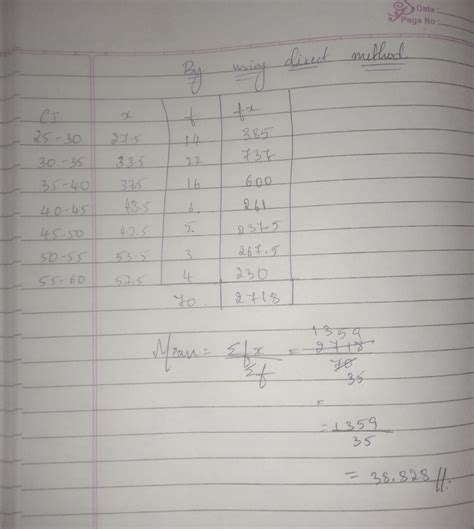 Date :
Page No :
By using direct method
CI x f fx
25-30 27.5 14 385
30-35 33.5 22 737
35-40 37.5 16 600
40-45 43.5 6. 261
45-50 47.5 5. 237.5
50-55 53.5 3 267.5
55-60 57.5 4 230
70 2718
Mean = Σfx/Σf = 1359 2718/70 35
=
= 1359/35
= 38.828 //.